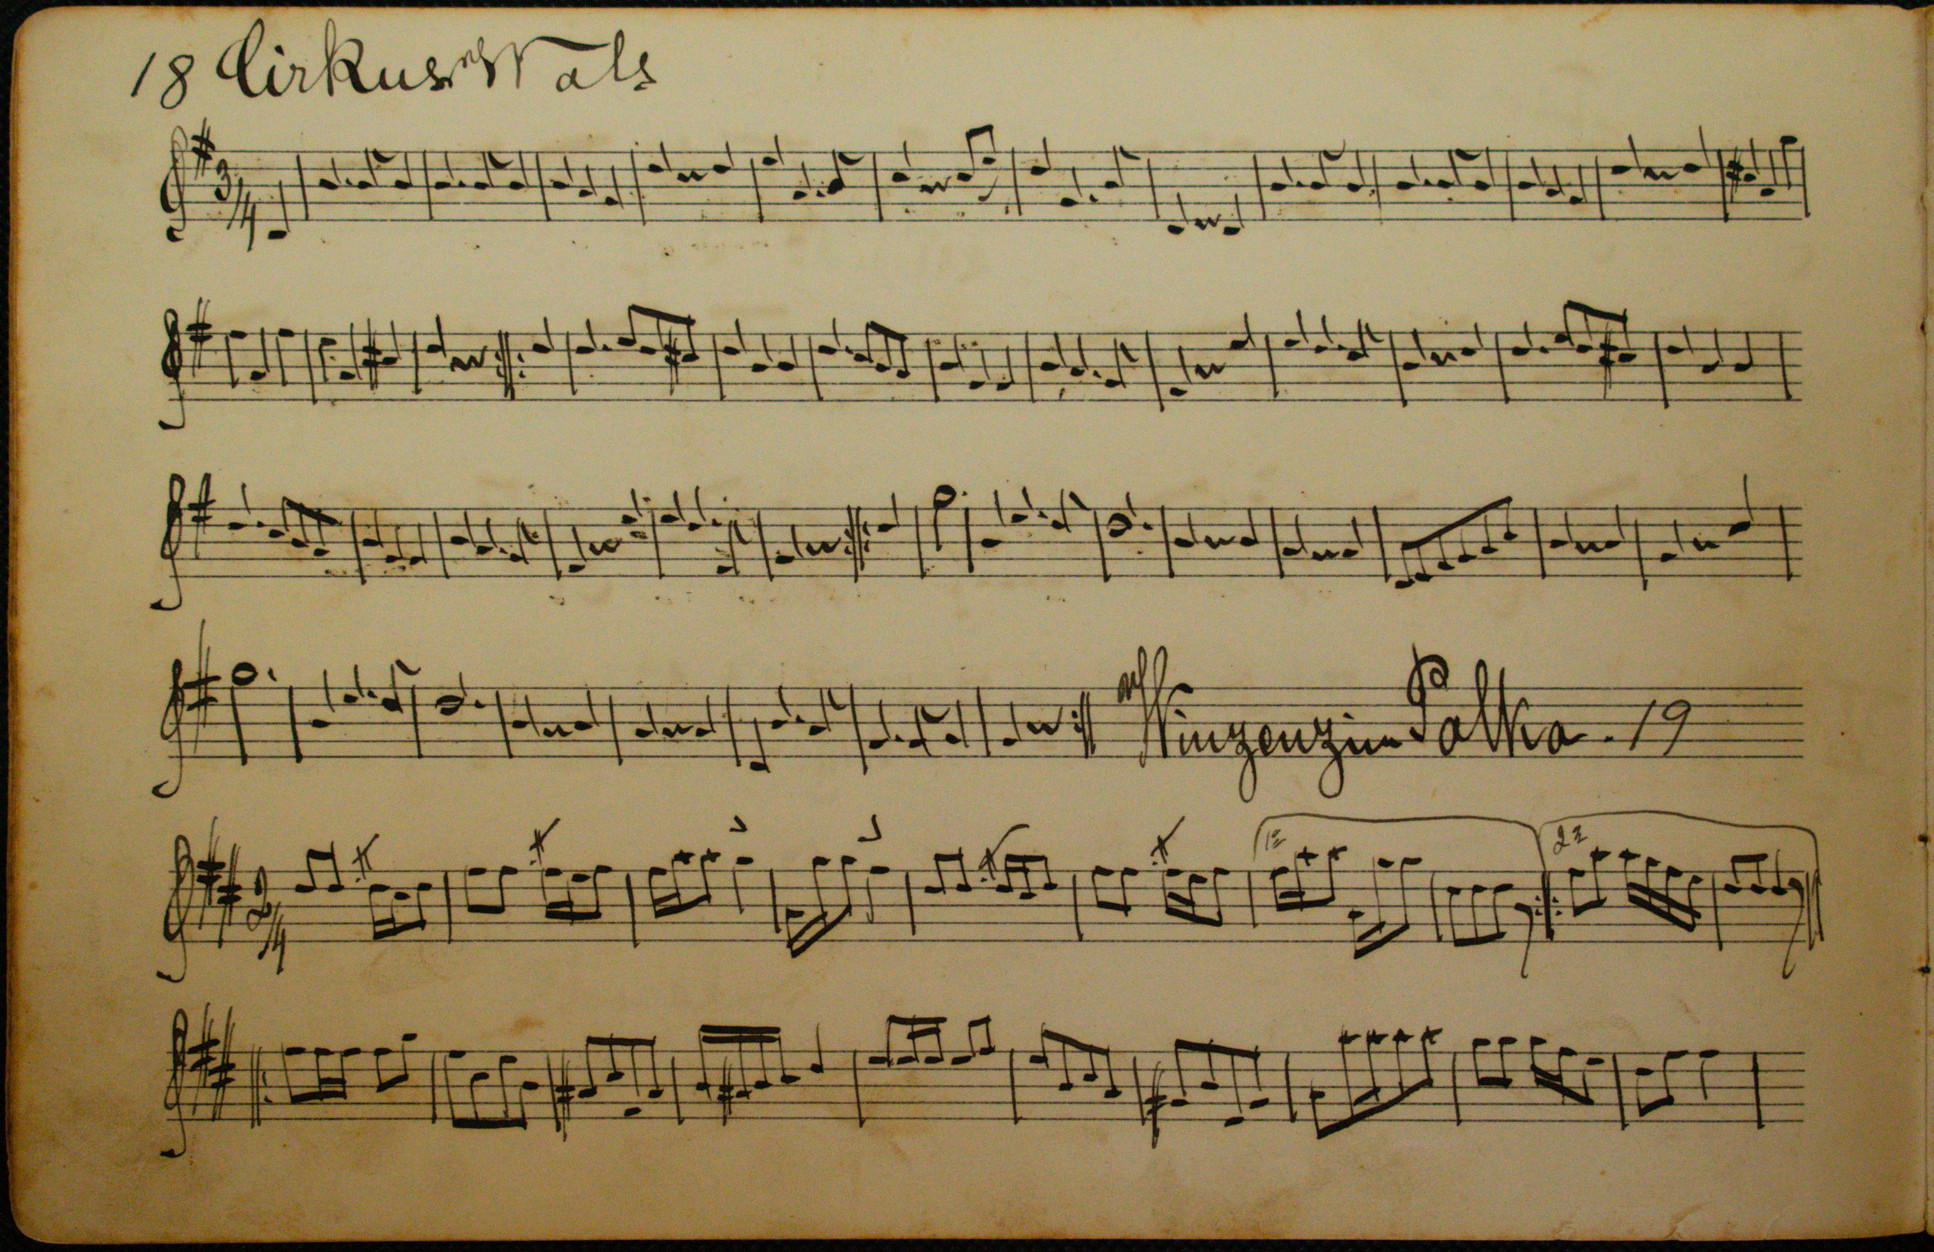 18 Cirkus Wals
3/4
Winzenzinn Polka. 19
2/4
1ª
2ª